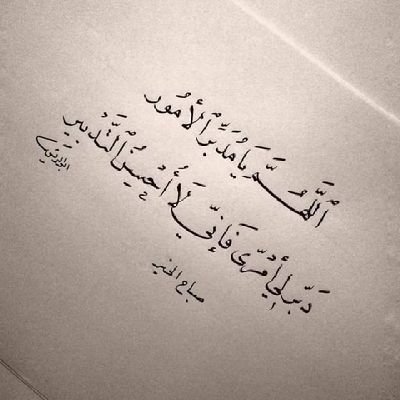 ٱللَّهُمَّ يَا مُدَبِّرَ ٱلْأُمُور
دَبِّر لِي أَمْرِي فَإِنِّي لَا أُحْسِنُ ٱلتَّدْبِير
صباح الخير